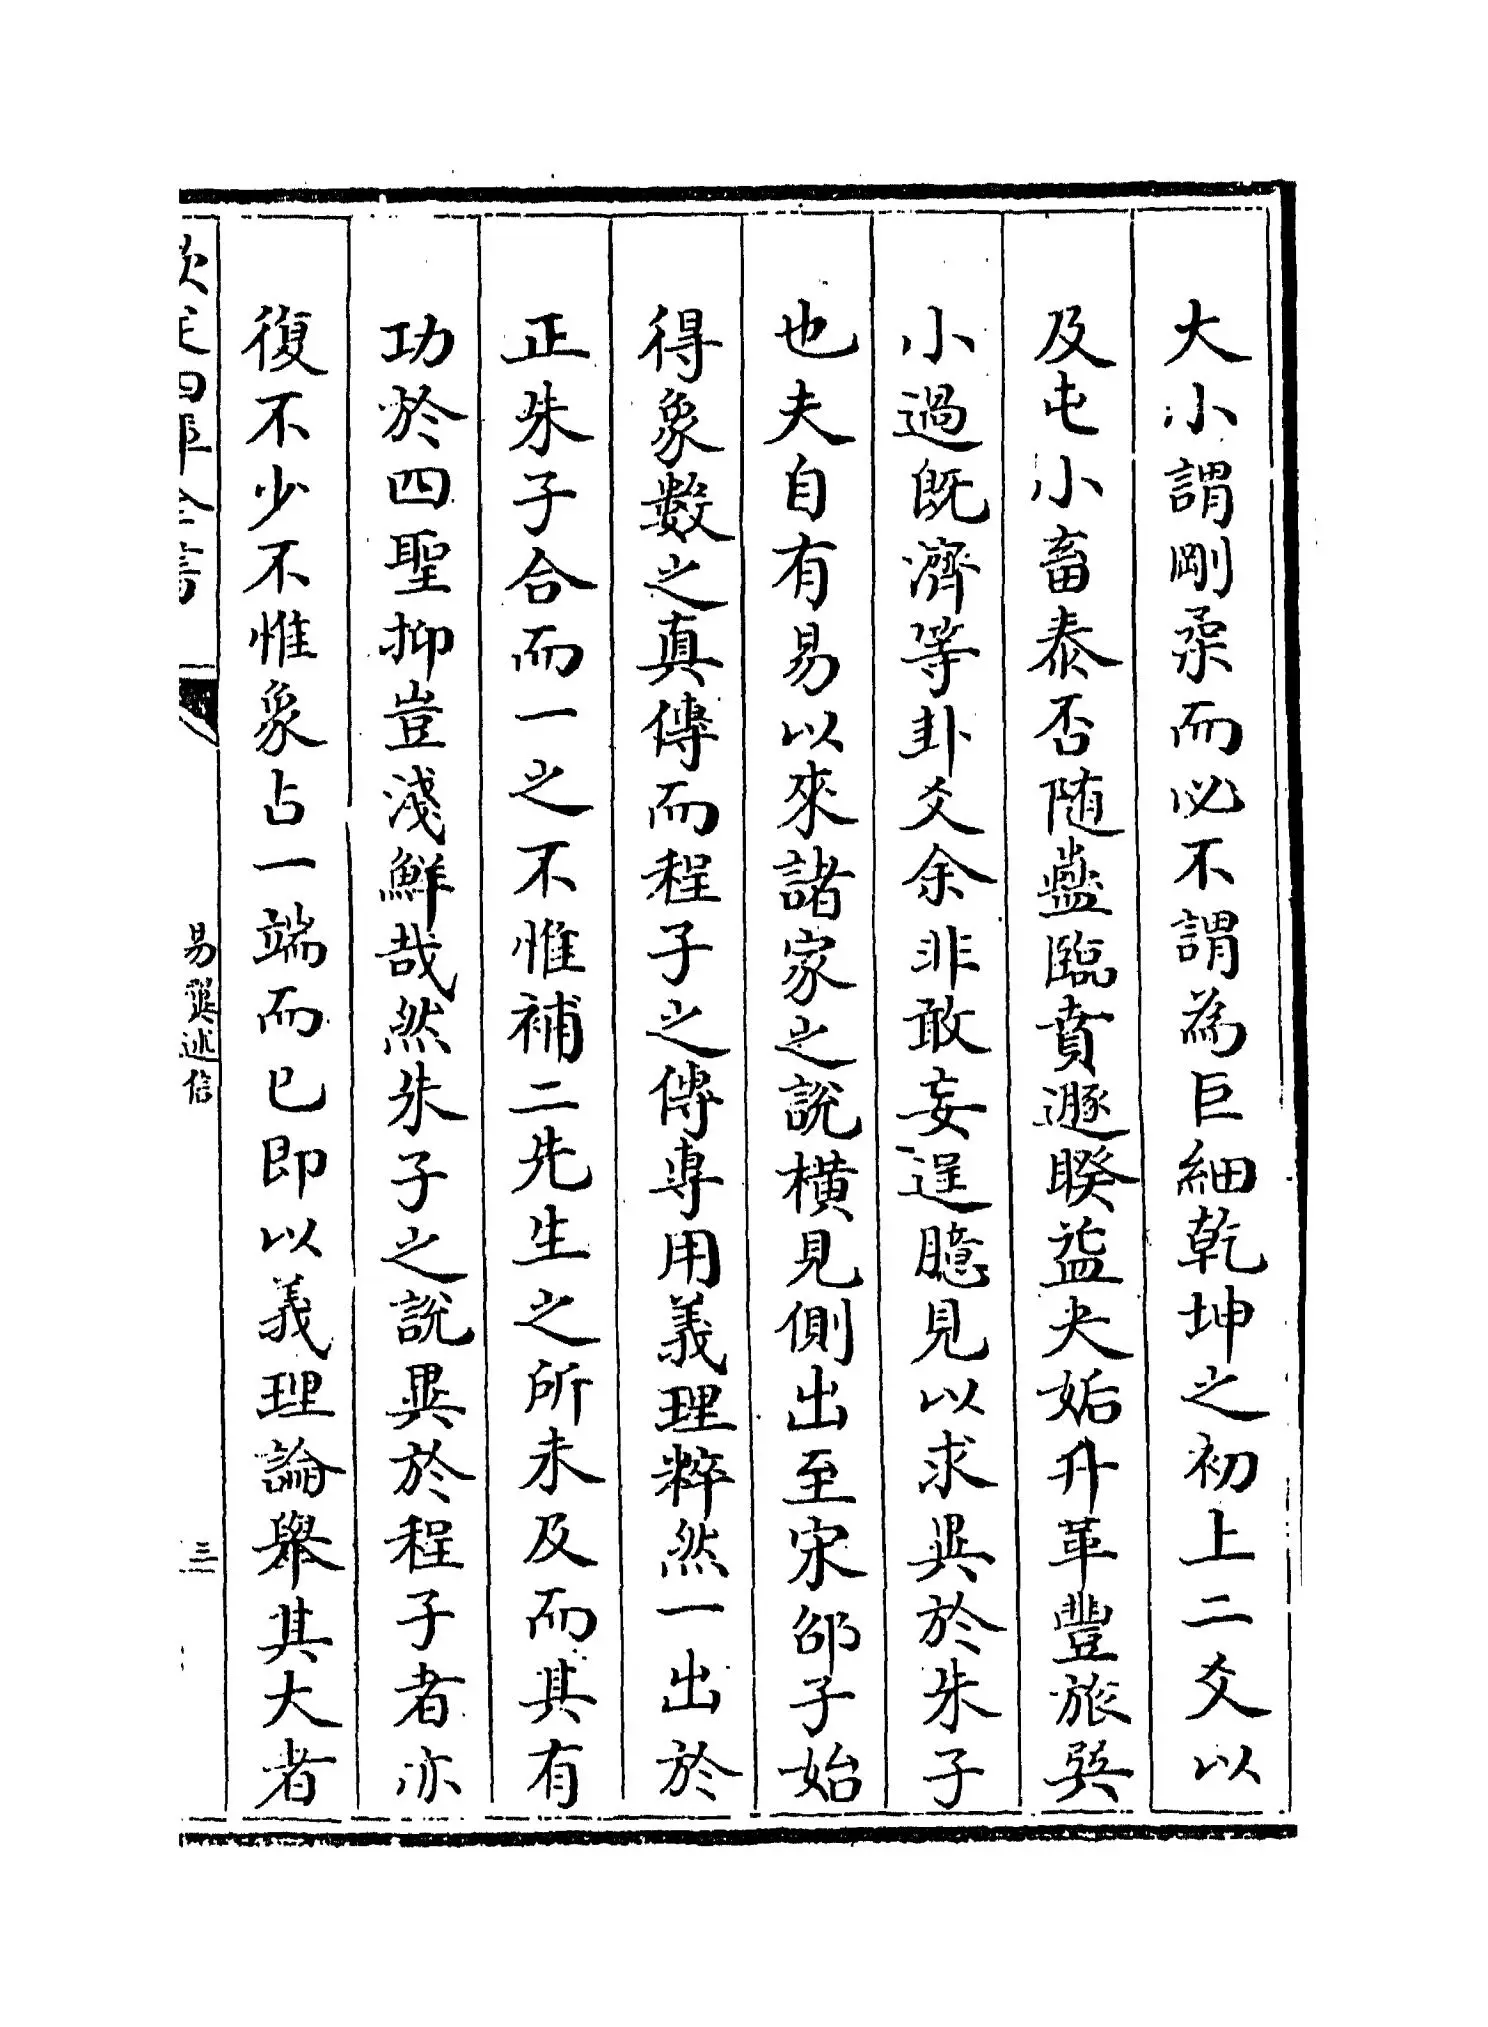 大小謂剛柔而必不謂為巨細乾坤之初上二爻以
及屯小畜泰否随蠱臨賁遯睽益夬姤升革豐旅巽
小過既濟等卦爻余非敢妄逞臆見以求異於朱子
也夫自有易以來諸家之說橫見側出至宋邵子始
得象數之真傳而程子之傳専用義理粹然一出於
正朱子合而一之不惟補二先生之所未及而其有
功於四聖抑豈淺鮮哉然朱子之說異於程子者亦
復不少不惟象占一端而已即以義理論舉其大者
欽定四庫全書
易翼述信
三